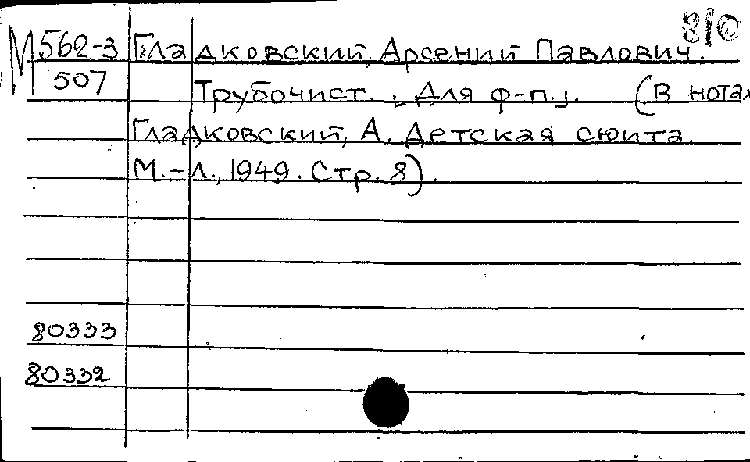 8/0
М 562-3 Гладковский, Арсений Павлович.
507 Трубочист. Для ф-п. (В нотах
Гладковский, А. Детская сюита
М.-Л., 1949. Стр. 8).
80333
80332